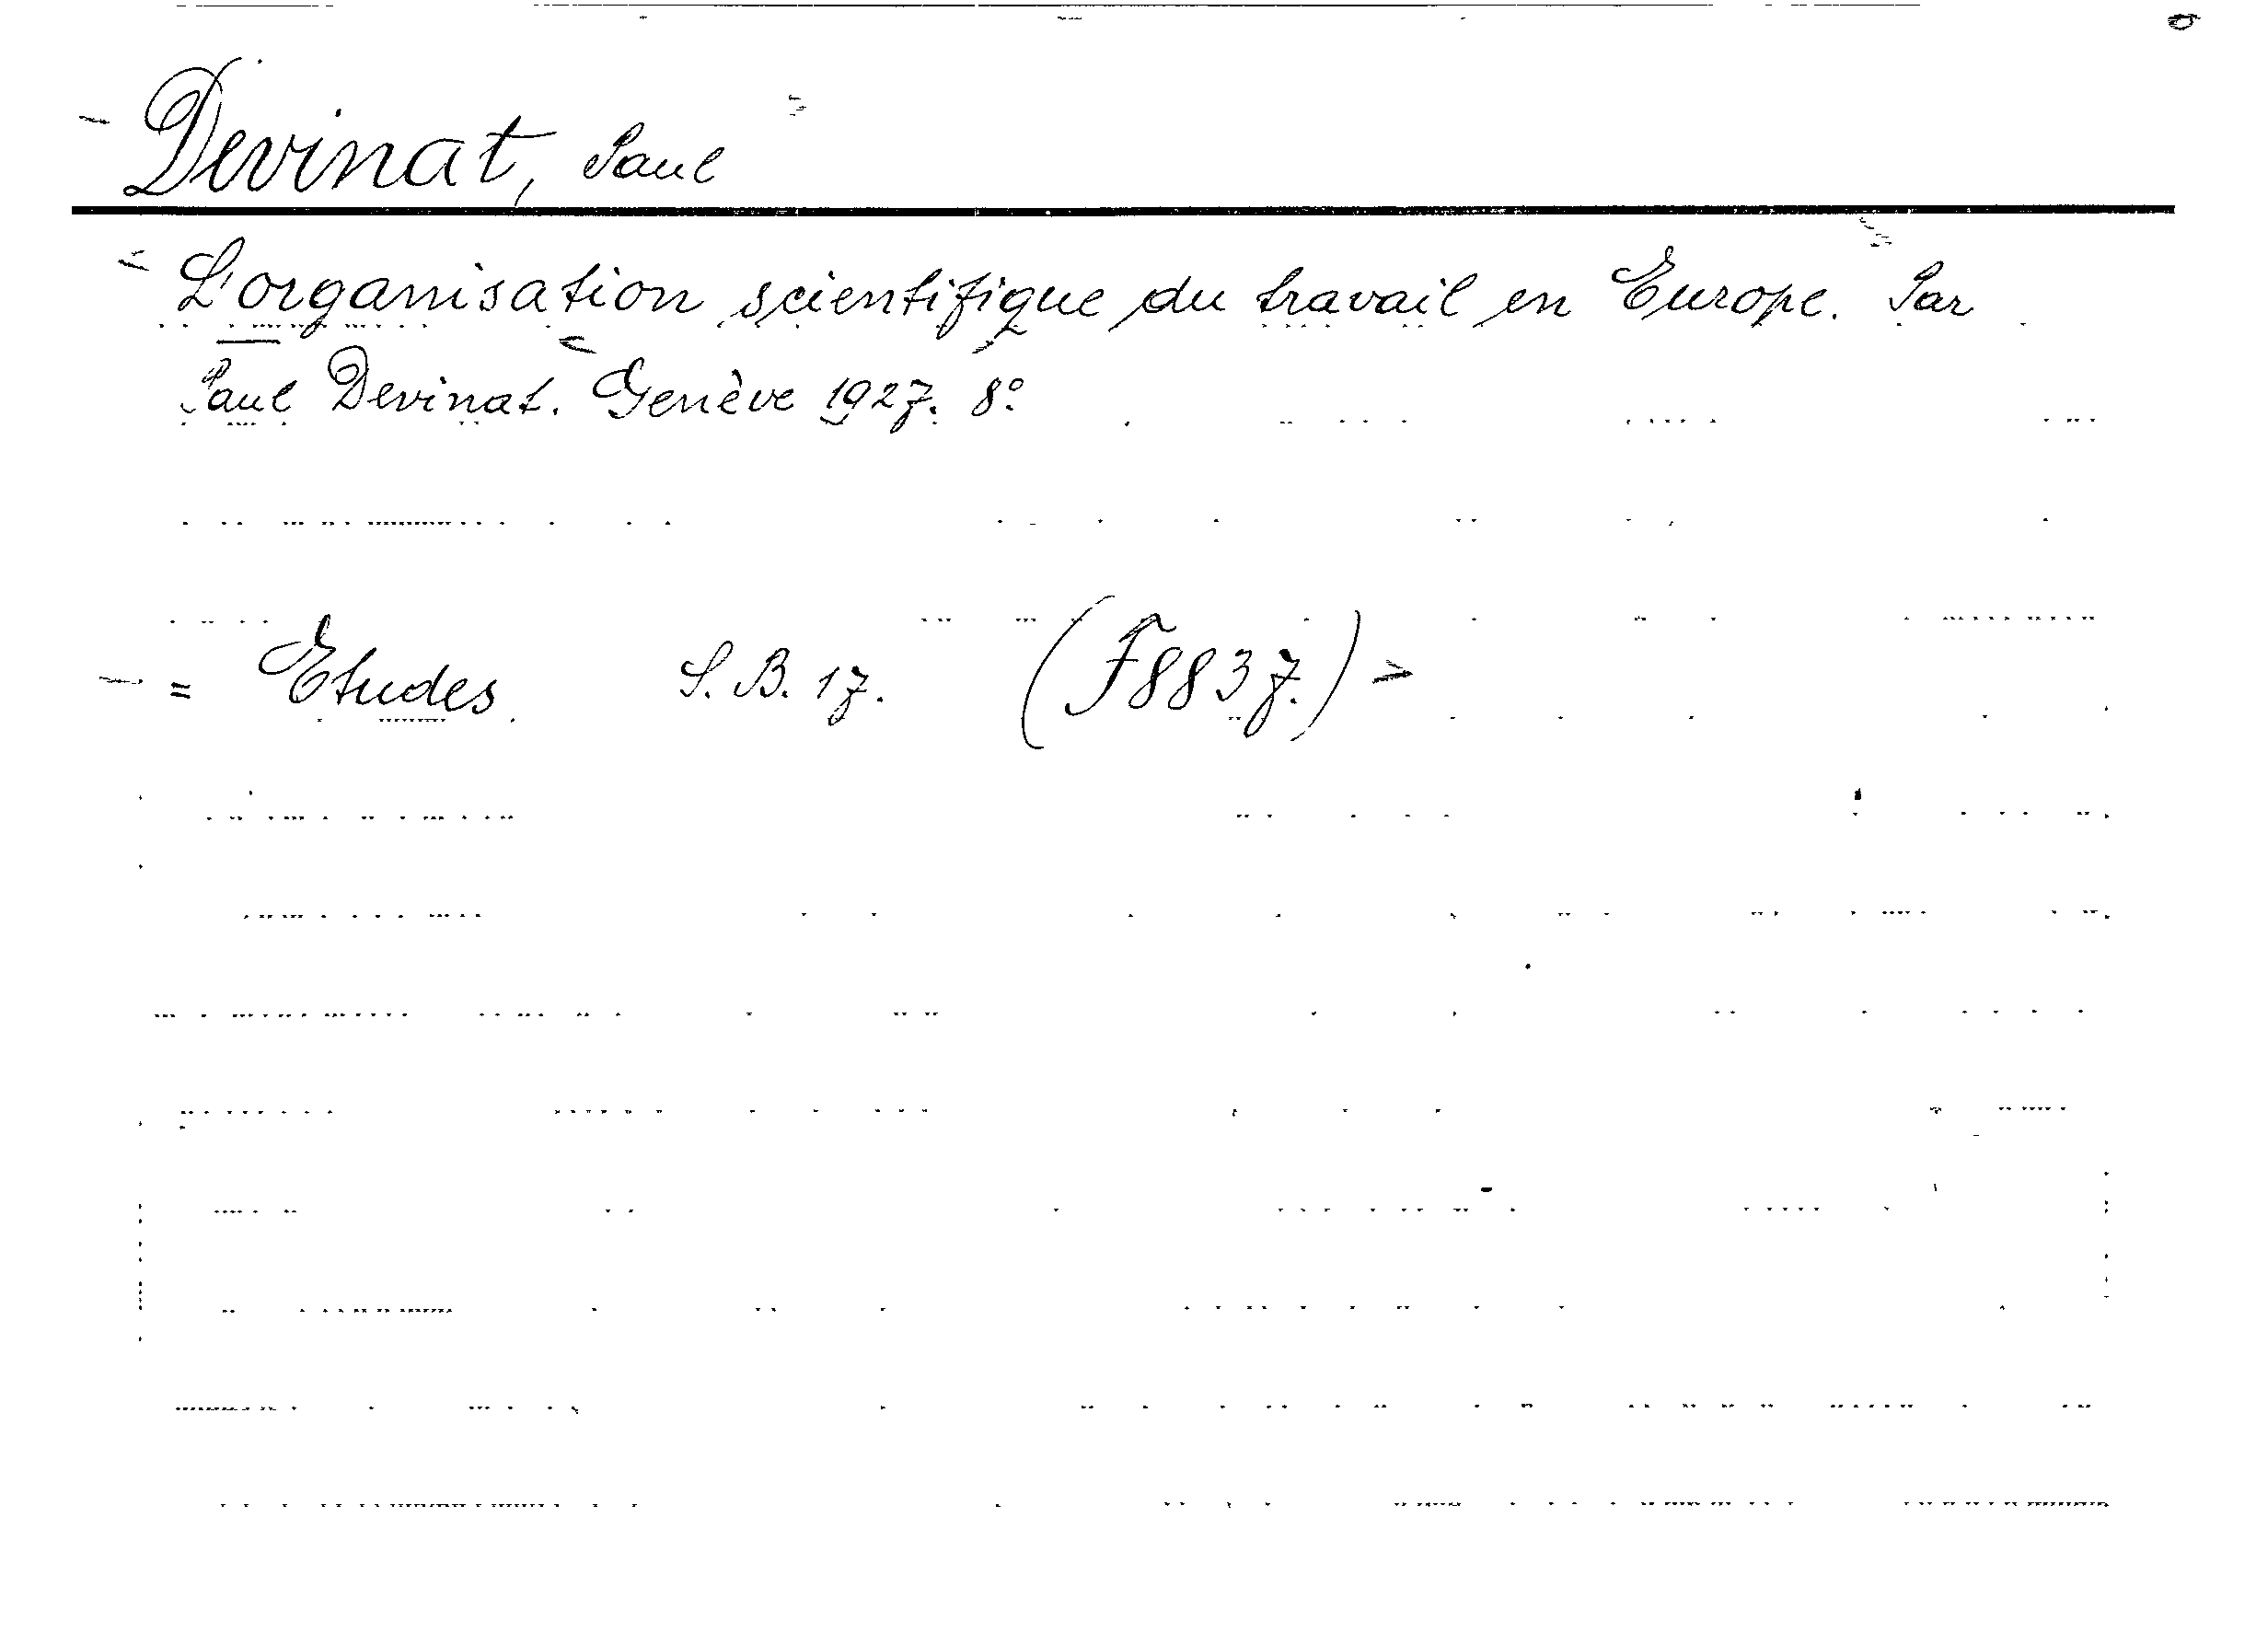 Devinat, Paul
L'organisation scientifique du travail en Europe. Par
Paul Devinat. Genève 1927. 8°
= Etudes S. B. 17. (F8837.)